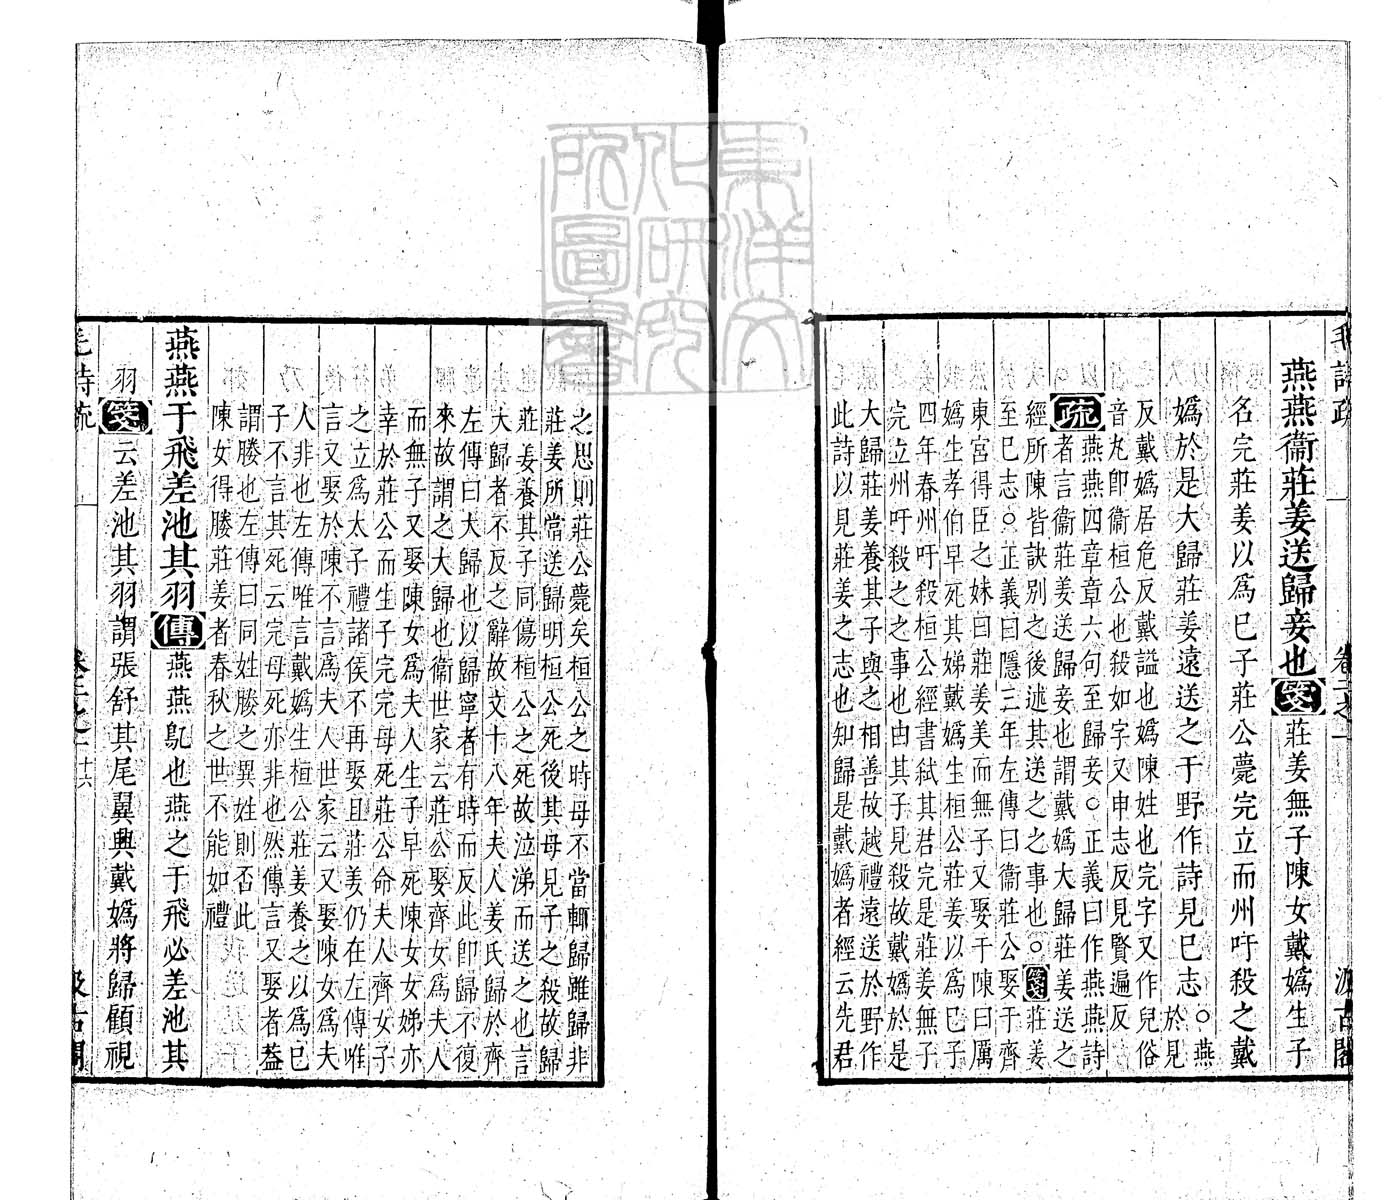 毛詩疏 卷二之一 汲古閣
燕燕衞莊姜送歸妾也箋莊姜無子陳女戴嬀生子
名完莊姜以爲已子莊公薨完立而州吁殺之戴
嬀於是大歸莊姜遠送之于野作詩見已志○燕於見
反戴嬀居危反戴謚也嬀陳姓也完字又作兒俗
音丸即衞桓公也殺如字又申志反見賢遍反
疏燕燕四章章六句至歸妾○正義曰作燕燕詩
者言衞莊姜送歸妾也謂戴嬀大歸莊姜送之
經所陳皆訣別之後述其送之之事也○箋莊姜
至已志○正義曰隱三年左傳曰衞莊公娶于齊
東宮得臣之妹曰莊姜美而無子又娶于陳曰厲
嬀生孝伯早死其娣戴嬀生桓公莊姜以爲已子
四年春州吁殺桓公經書弒其君完是莊姜無子
完立州吁殺之之事也由其子見殺故戴嬀於是
大歸莊姜養其子與之相善故越禮遠送於野作
此詩以見莊姜之志也知歸是戴嬀者經云先君
之思則莊公薨矣桓公之時母不當輒歸雖歸非
莊姜所當送歸明桓公死後其母見子之殺故歸
莊姜養其子同傷桓公之死故泣涕而送之也言
大歸者不反之辭故文十八年夫人姜氏歸於齊
左傳曰大歸也以歸寧者有時而反此即歸不復
來故謂之大歸也衞世家云莊公娶齊女爲夫人
而無子又娶陳女爲夫人生子早死陳女女娣亦
幸於莊公而生子完完母死莊公命夫人齊女子
之立爲太子禮諸侯不再娶且莊姜仍在左傳唯
言又娶於陳不言爲夫人世家云又娶陳女爲夫
人非也左傳唯言戴嬀生桓公莊姜養之以爲已
子不言其死云完母死亦非也然傳言又娶者葢
謂媵也左傳曰同姓媵之異姓則否此
陳女得媵莊姜者春秋之世不能如禮
燕燕于飛差池其羽傳燕燕鳦也燕之于飛必差池其
羽箋云差池其羽謂張舒其尾翼興戴嬀將歸顧視
毛詩疏 卷二之一 十六 汲古閣